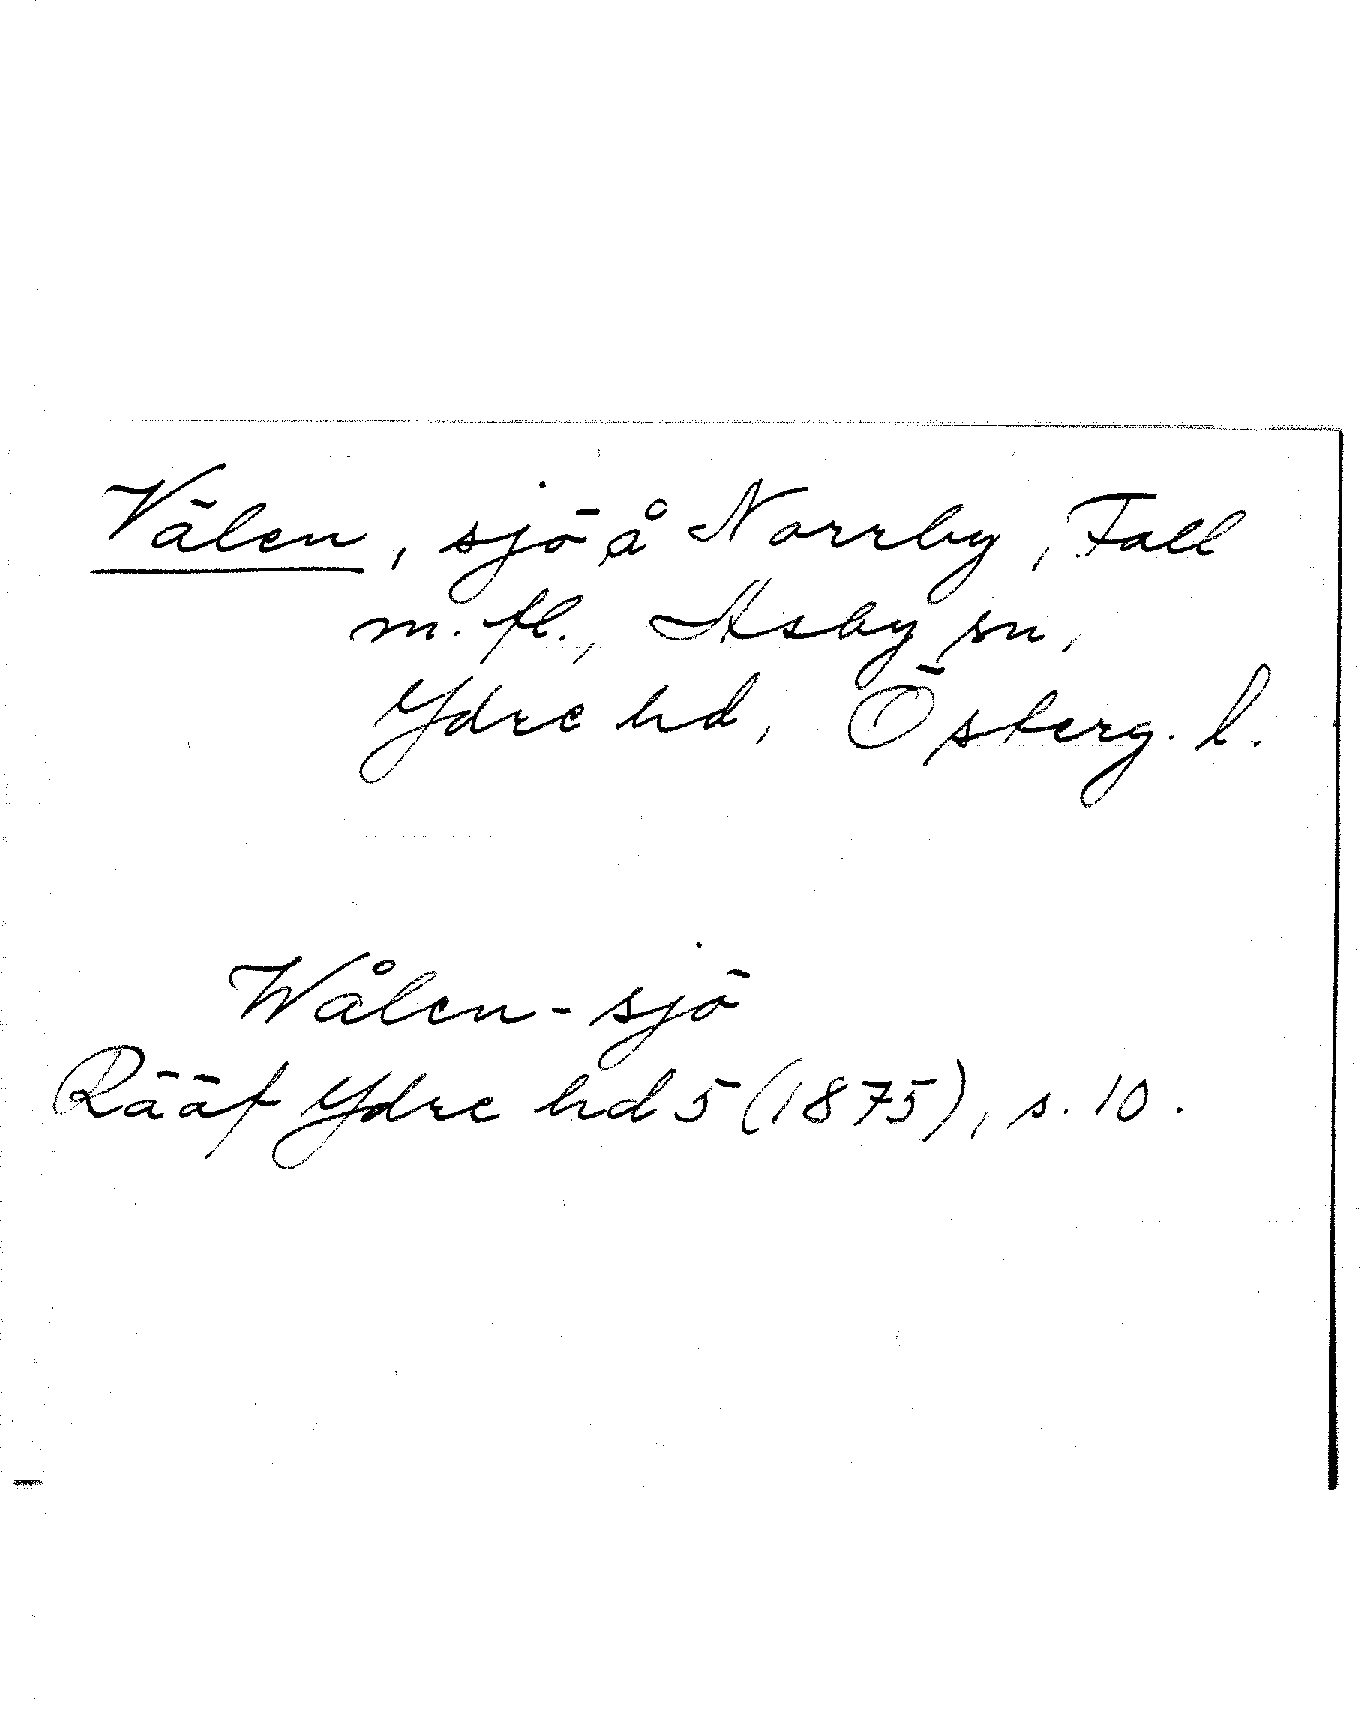 Välen, sjö å Norrby, Fall
m. fl., Asby sn,
Ydre hd, Österg. l.
Wålen-sjö
Rääf Ydre hd 5 (1875), s. 10.